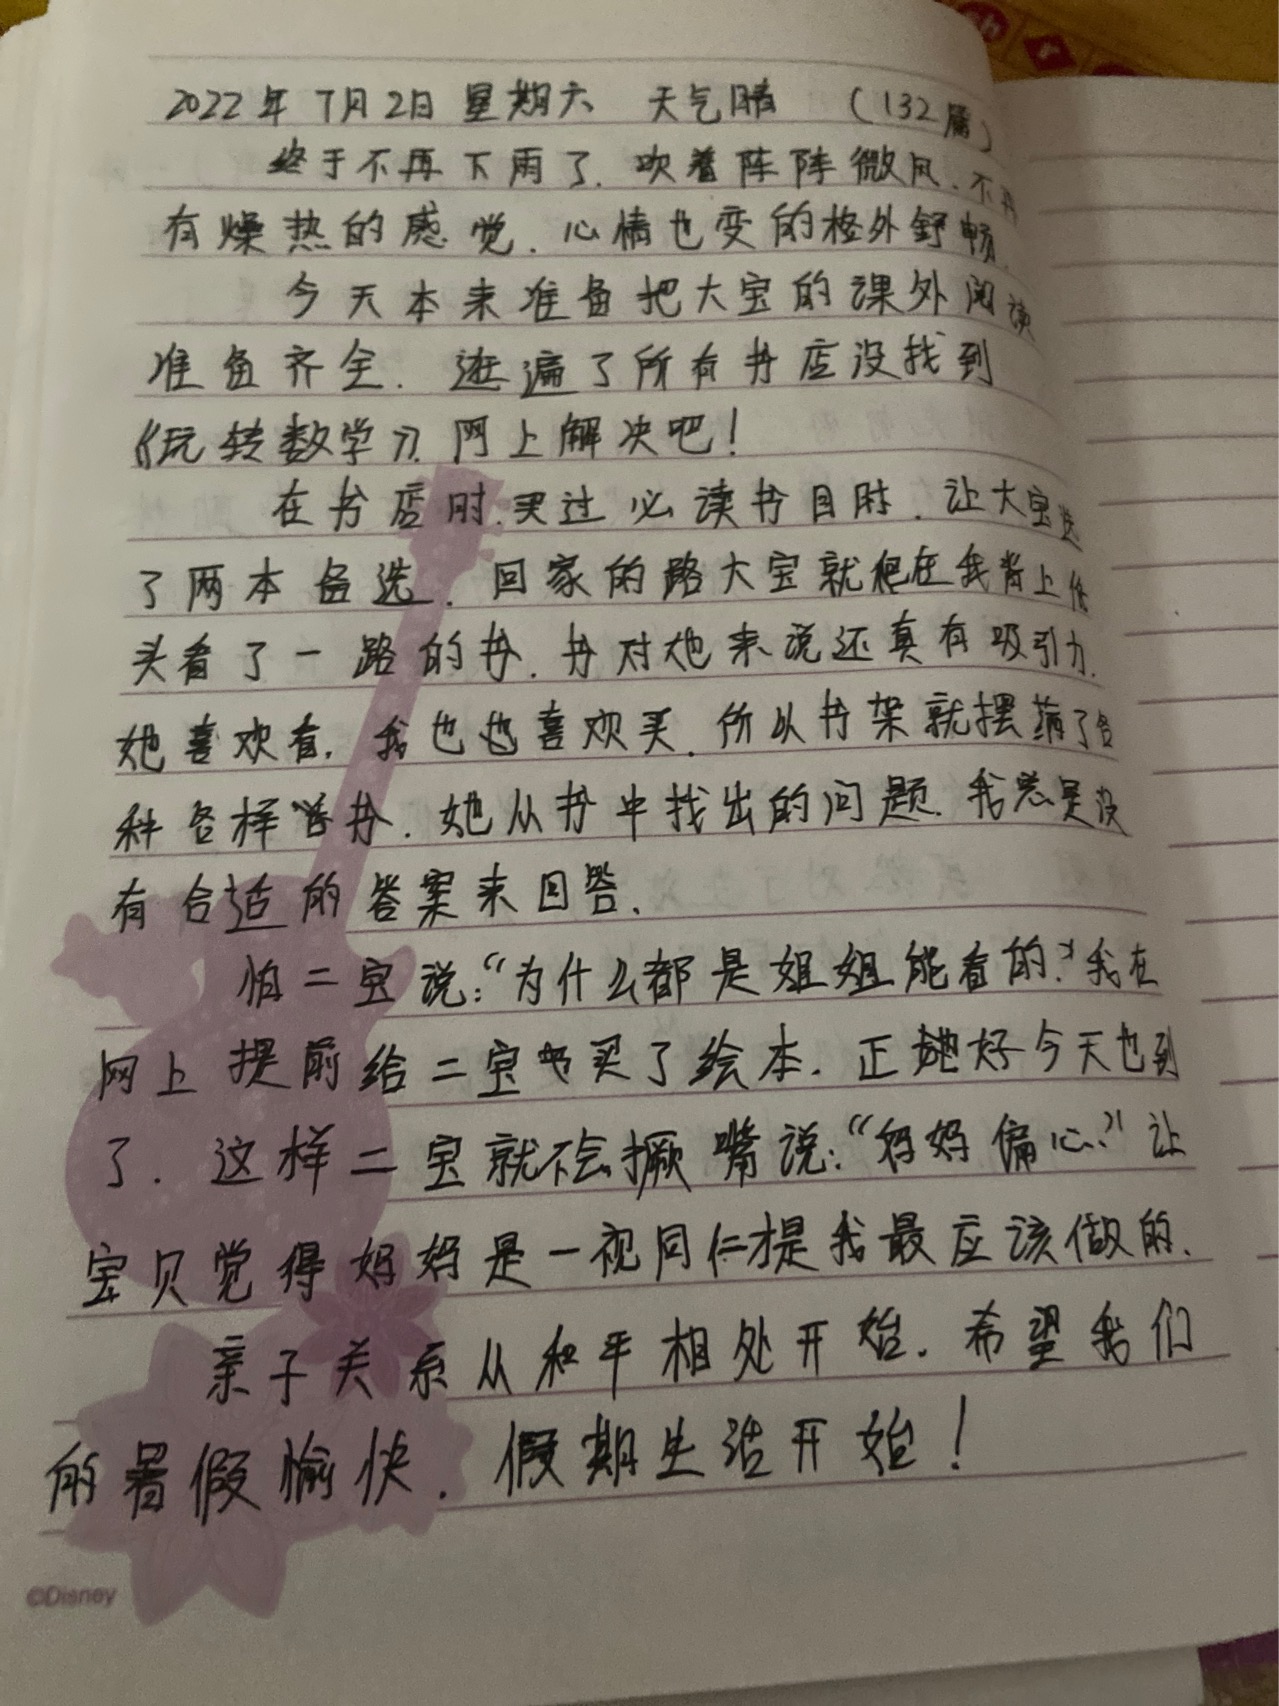 2022年7月2日 星期六 天气晴 (132届)
终于不再下雨了.吹着阵阵微风.不再
有燥热的感觉.心情也变的格外舒畅.
今天本来准备把大宝的课外阅读
准备齐全.逛遍了所有书店没找到
《玩转数学》.网上解决吧!
在书店时.买过必读书目时.让大宝选
了两本备选.回家的路大宝就爬在我背上低
头看了一路的书.书对她来说还真有吸引力.
她喜欢看.我也也喜欢买.所以书架就摆满了各
种各样的书.她从书中找出的问题.我总是没
有合适的答案来回答.
怕二宝说:“为什么都是姐姐能看的.”我在
网上提前给二宝也买了绘本.正好今天也到
了.这样二宝就不会撅嘴说:“妈妈偏心.”让
宝贝觉得妈妈是一视同仁才是我最应该做的.
亲子关系从和平相处开始.希望我们
的暑假愉快.假期生活开始!
©Disney
sh
r